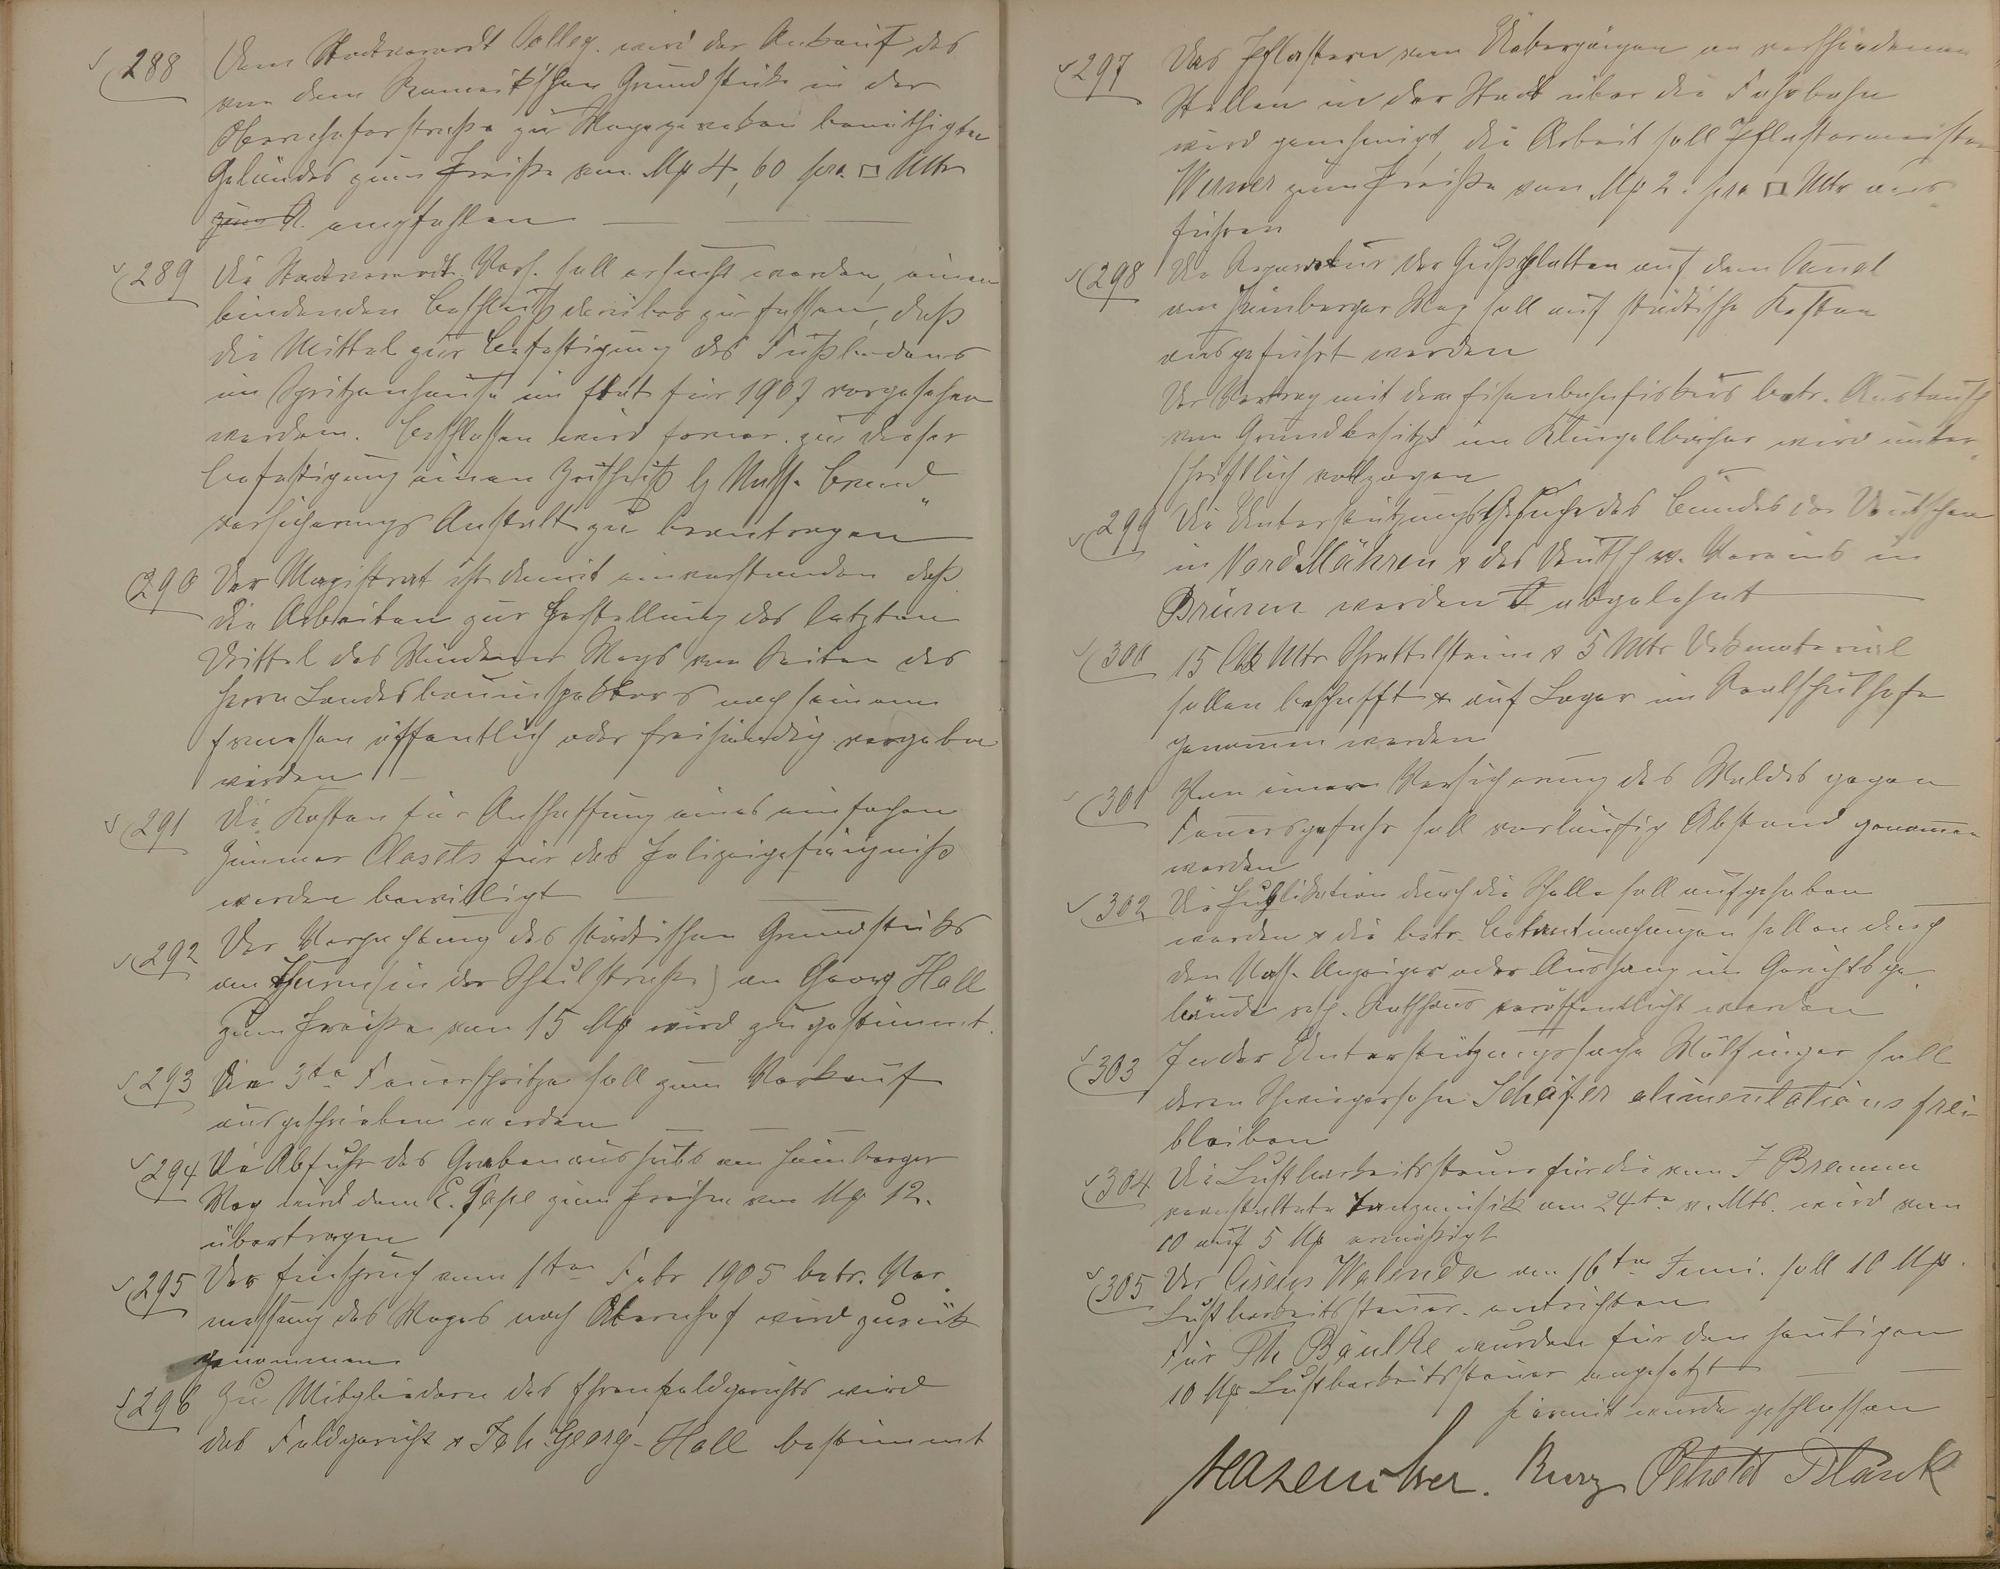 288 Dem Stadtverordt Colleg. wird der Ankauf des
von dem Grundstücke in der
Oberneuhoferstraße zur Weganlage benöthigten
Geländes zum Preiße von Mk 4,60 pro □ Mtr
empfohlen
289 Die Stadtverordt. Vers. soll ersucht werden, einen
bindenden Beschluß darüber zu fassen, daß
die Mittel zur Befestigung des Fußbodens
im Spritzenhause im Etat für 1907 vorgesehen
werden. Beschlossen wird ferner zu dieser
Befestigung einen Zuschuß b/ Nass. Brand
versicherungs Anstalt zu beantragen
290 Der Magistrat ist damit einverstanden daß
die Arbeiten zur Herstellung des letzten
Drittel des Weges von Seiten des
Herrn Landesbauinspektors nach seinem
Ermessen öffentlich oder freihändig vergeben
werden
291 Die Kosten für Anschaffung eines einfachen
Zimmer Closets für das Polizeigefängniß
werden bewilligt
292 Der Verpachtung des städtischen Grundstücks
am Thurm (in der Schulstraße) an Georg Holl
zum Preiße von 15 Mk wird zugestimmt.
293 Die 3te Feuerspritze soll zum Verkauf
ausgeschrieben werden
294 Die Abfuhr des Grabenaushubs am Hainberger
Weg wird dem E. zum Preise von Mk 12.
übertragen
295 Der Einspruch vom 1ten Febr 1905 betr. Ver
messung des Weges nach Obernhof wird zurück
genommen
296 Zu Mitgliedern des Ehrenfeldgerichts wird
das Feldgericht & Joh. Georg Holl bestimmt
297 Das Pflastern von Uebergängen an verschiedenen
Stellen in der Stadt über die Fahrbahn
wird genehmigt, die Arbeit soll Pflastermeister
Werner zum Preiße von Mk 2. pro □ Mtr aus
führen
298 Die Reparatur der Gußplatten auf dem Canal
am Hainberger Weg soll auf städtische Kosten
ausgeführt werden
Der Vertrag mit dem Eisenbahnfiskus betr. Austausch
von Grundbesitz im Klingelbacher wird unter
schriftlich vollzogen
299 Die Unterstützungs Gesuche des Bundes der Deutschen
in Nord Mähren & des Deutsch Vereins in
Brünn werden abgelehnt
300 15 Cb Mtr Schottelsteine & 5 Mtr Dekmaterial
sollen beschafft & auf Lager im Realschulhofe
genommen werden
301 Von einer Versicherung des Waldes gegen
Feuersgefahr soll vorläufig Abstand genommen
werden
302 Die Publikation durch die Schelle soll aufgehoben
werden & die betr. Bekanntmachungen sollen durch
den Nass. Anzeiger oder Aushang im Gerichtsge
bäude resp. Rathhaus veröffentlicht werden
303 In der Unterstützungssache Wülfinger soll
deren Schwiegersohn Schäfer alimentationsfrei
bleiben
304 Die Lustbarkeitssteuer für die von J Bremm
veranstaltete Tanzmusik am 24ten v. Mts. wird von
10 auf 5 Mk ermäßigt
305 Der Circus Walenda am 16ten Juni. soll 10 Mk.
Lustbarkeitssteuer entrichten
Für Th Bäulke wurden für den heutigen
10 Mk Lustbarkeitssteuer angesetzt
Hiermit wurde geschlossen
Kurz